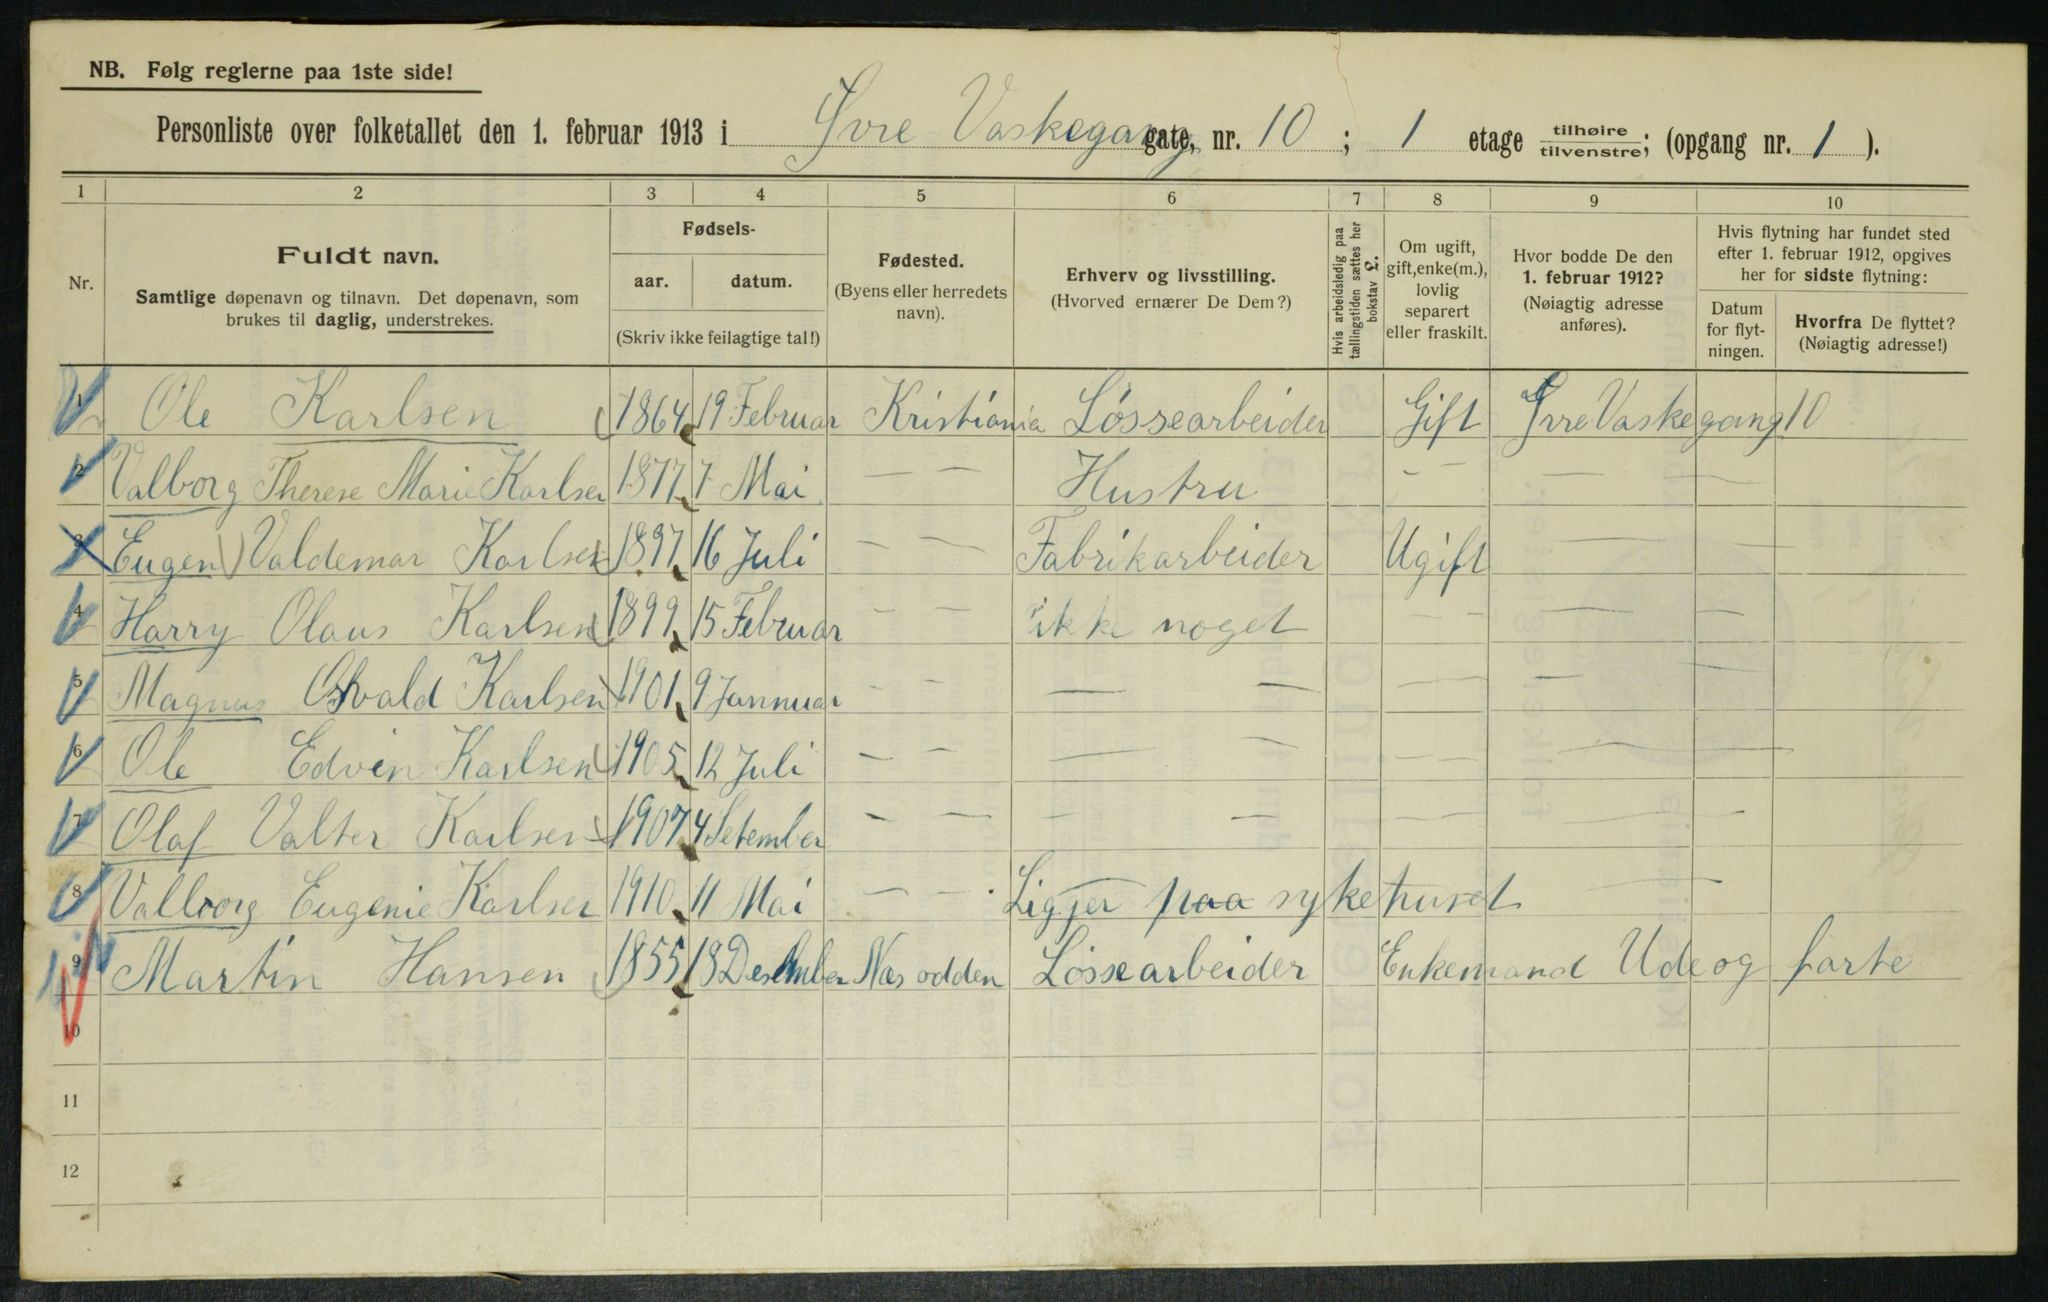 NB. Følg reglerne paa 1ste side!
Personliste over folketallet den 1. februar 1913 i Øvre Vaskegang gate, nr. 10 ; 1 etage tilhøire/tilvenstre; (opgang nr. 1 ).
1 2 3 4 5 6 7 8 9 10
Nr.
Fuldt navn.
Samtlige døpenavn og tilnavn. Det døpenavn, som
brukes til daglig, understrekes.
Fødsels-
aar. datum.
(Skriv ikke feilagtige tal!)
Fødested.
(Byens eller herredets
navn).
Erhverv og livsstilling.
(Hvorved ernærer De Dem?)
Hvis arbeidsledig paa
tællingstiden sættes her
bokstav L.
Om ugift,
gift, enke(m.),
lovlig
separert
eller fraskilt.
Hvor bodde De den
1. februar 1912?
(Nøiagtig adresse
anføres).
Hvis flytning har fundet sted
efter 1. februar 1912, opgives
her for sidste flytning:
Datum
for flyt-
ningen.
Hvorfra De flyttet?
(Nøiagtig adresse!)
1 Ole Karlsen 1864 19 Februar Kristiania Løssearbeider Gift Øvre Vaskegang 10
2 Valborg Therese Marie Karlsen 1877 7 Mai — — Hustru — — — — —
3 Eugen Valdemar Karlsen 1897 16 Juli — — Fabrikarbeider Ugift — —
4 Harry Olaus Karlsen 1899 15 Februar — — ikke noget — — — —
5 Magnus Osvald Karlsen 1901 9 Jannuar — — — — — — — —
6 Ole Edvin Karlsen 1905 12 Juli — — — — — — —
7 Olaf Valter Karlsen 1907 4 Setember — — — — — — — —
8 Valborg Eugenie Karlsen 1910 11 Mai — — Ligger paa sykehuset — —
9 Martin Hansen 1855 18 Desember Næsodden Løssearbeider Enkemand Ude og farte
10
11
12